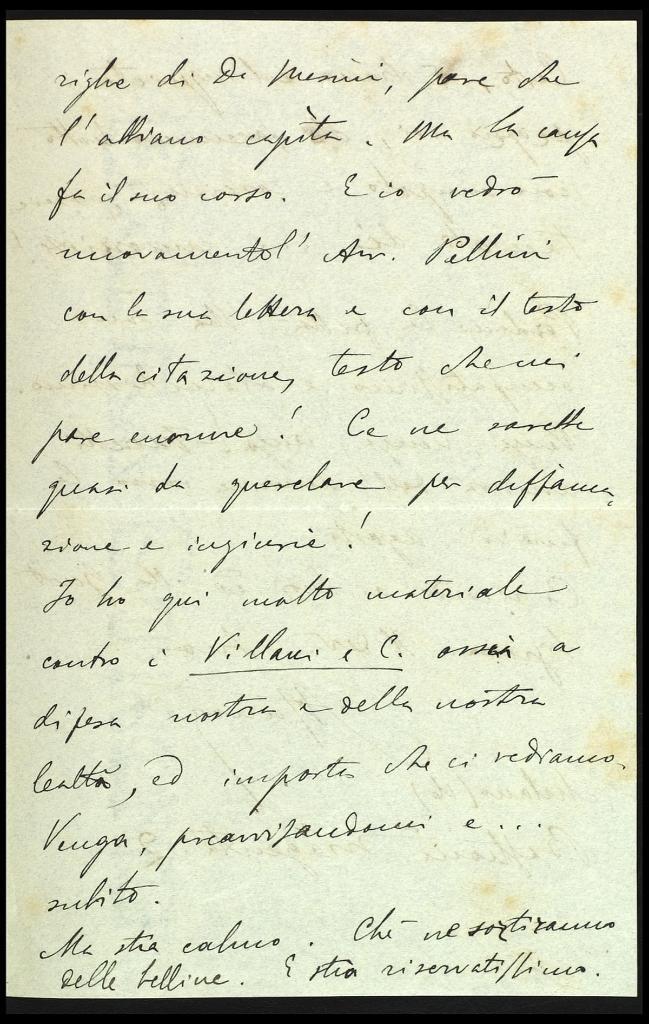 righe di De Mesini, pare che
l'abbiano capita. Ma la causa
fa il suo corso. E io vedrò
nuovamente l'Avv. Pellini
con la sua lettera e con il testo
della citazione, testo che mi
pare enorme! Ce ne sarebbe
quasi da querelare per diffama-
zione e ingiurie!
Io ho qui molto materiale
contro i Villani e C. ossia a
difesa nostra e della nostra
lealtà, ed importa che ci vediamo.
Venga, preavvisandomi e...
subito.
Ma stia calmo. Chè ne sortiranno
delle belline. E stia riservatissimo.